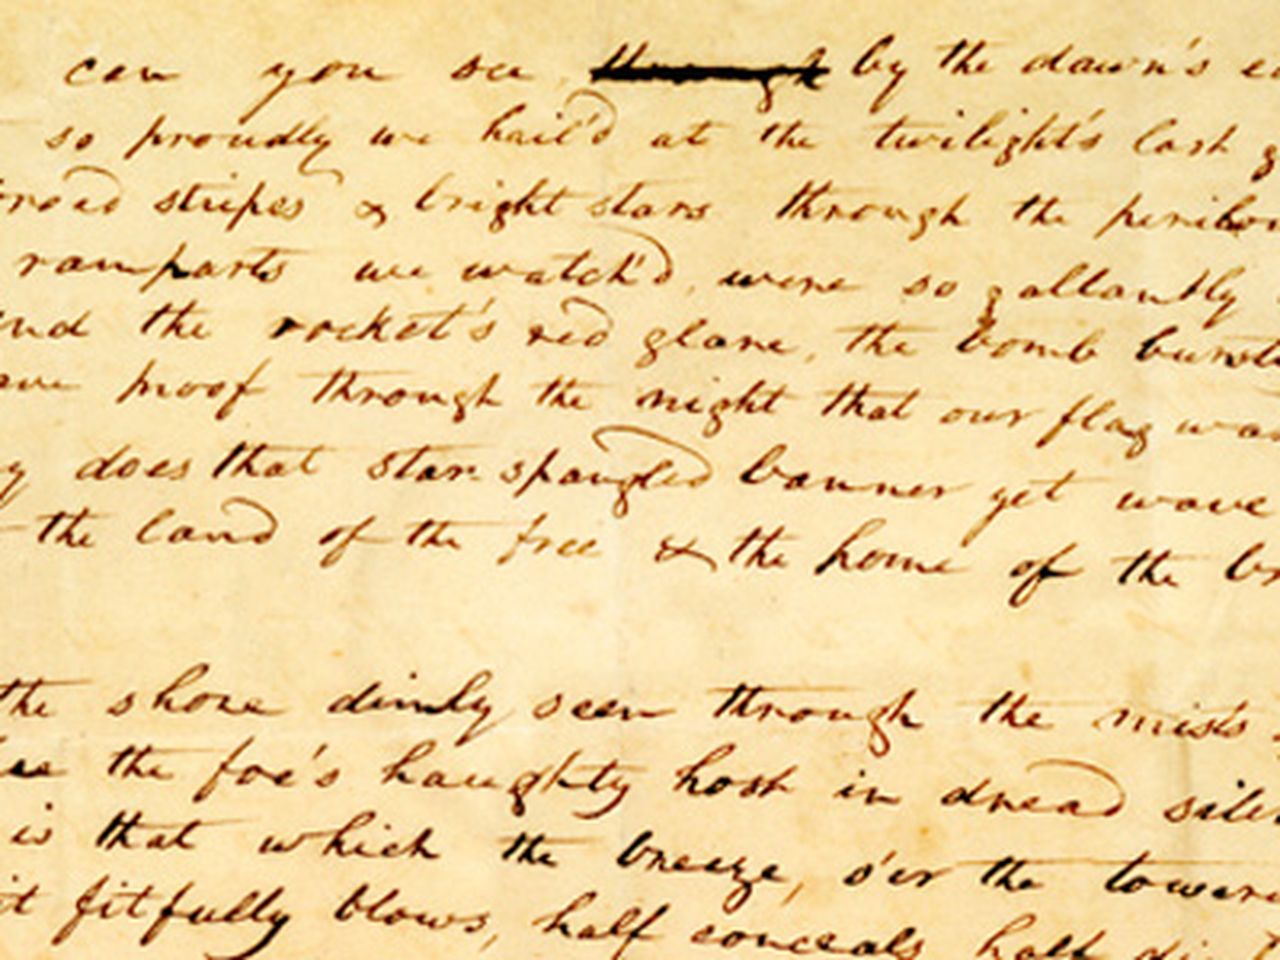 can you see through by the dawn's ea
so proudly we hail'd at the twilight's last g
broad stripes & bright stars through the perilou
ramparts we watch'd, were so gallantly
and the rocket's red glare, the bomb bursti
ave proof through the night that our flag was
ay does that star-spangled banner yet wave
the land of the free & the home of the br
the shore dimly seen through the mists
here the foe's haughty host in dread silen
is that which the breeze, o'er the towerin
it fitfully blows, half conceals half di